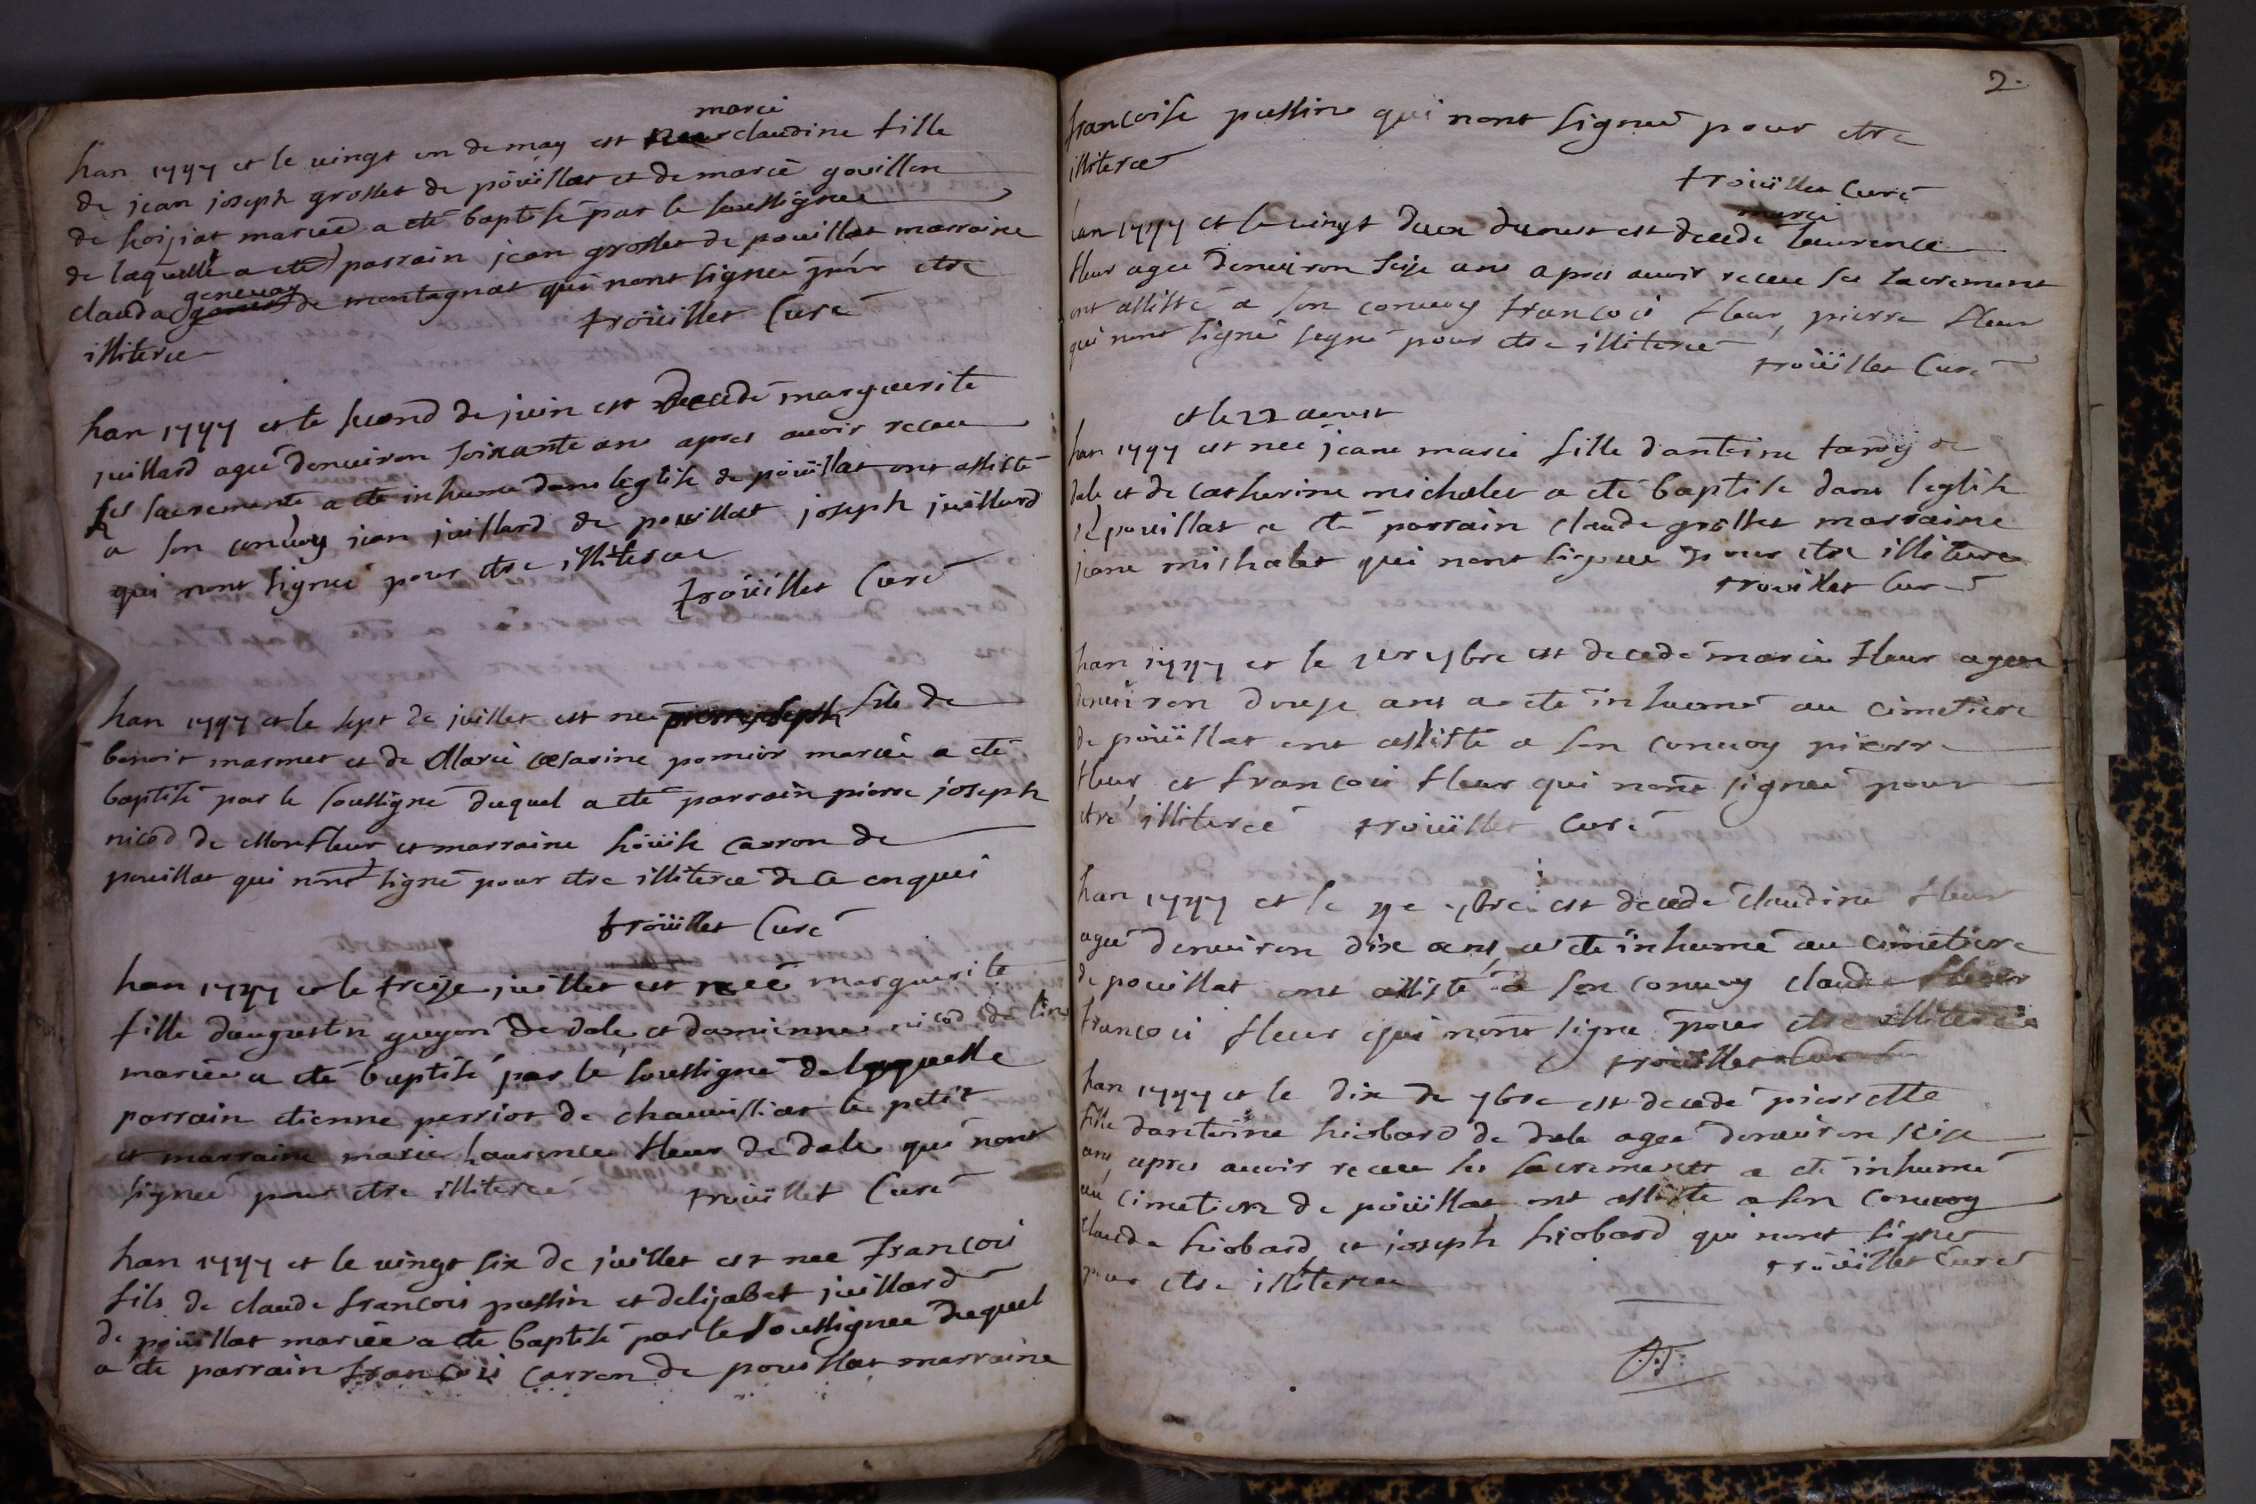 marie
lan 1747 et le vingt un de may est nee claudine fille
de jean joseph grosset de pöuïllat et de mariè gouillon
de loisiat mariéé a eté baptisé par le soussignee
de laquelle a eté parrain jean grosset de pouillat marraine
genevay
clauda de montagnat qui nont signee pour etre
illiteree
tröuillet Curé
lan 1747 et le second de juin est decedé marguerite
juillard ageé denuiron soixante ans apres auoir receu
ses sacrements a eté inhumé dans leglise de pöuillat ont assisté
a son conuoy jean juillard de pouillat joseph juillard
qui nont signeé pour etre illiteree
tröuillet Curé
lan 1747 et le sept de juillet est neé pierre joseph fils de
benoit marmet et de Marie cesarine pomier mariée a eté
baptisé par le soussigné duquel a eté parrain pierre joseph
nicod de Monfleur et marraine löuise carron de
pouillat qui nont signé pour etre illiteree de ce enquis
tröuillet Curé
lan 1747 et le treize juillet est neeé marguerite
fille daugustin guyon de dale et damienne nicod de
marieé a eté baptisé par le soussigné de laquelle
parrain etienne perrior de chauissiat le petit
et marraine marie laurence fleur de dale qui nont
signeé pour etre illitereé
tröuillet Curé
lan 1747 et le vingt six de juillet est nee francois
fils de claude francois pussin et delizabet juillard
de pöuillat mariée a eté baptisé par le soussignee duquel
a eté parrain francois carron de pouillat marraine
2.
francoise pussin qui nont signeé pour etre
illiteree
tröuïllet Curé
marie
lan 1747 et le vingt deux daoust est decedé laurence
fleur agee denuiron seize ans apres auoir receu ses sacrement
ont assisté a son conuoy francois fleur, pierre fleur
qui nont signé segné pour etre illitereé
tröuillet Curé
et le 22 aoust
lan 1747 est neé jeane marie fille dantoine tardy de
dale et de catherine michalet a eté baptisé dans leglise
de pouillat a eté parrain claude grosset marraine
jeane michalet qui nont signee pour etre illiteree
trouillet Curé
lan 1747 et le 1er 7bre est decedé marie fleur agee
denuiron douze ans a eté inhumé au cimetiere
de pöuillat ont assisté a son conuoy pierre
fleur, et francois fleur qui nont signeé pour
etré illitereé tröuillet Curé
lan 1747 et le 7bre est decedé claudine fleur
ageé denuiron dix ans, a eté inhumé au cimetiere
de pouillat ont assisté a son conuoy claude fleur
francois fleur qui nont signé pour etre illiteree
tröuillet Curé
lan 1747 et le dix de 7bre est decedé pierrette
fille dantoine hiobard de dale ageé denuiron seize
ans, apres auoir receu les sacrements a eté inhumé
au cimetiere de pöuillat, ont assisté a son conuoy
claude hiobard, et joseph hiobard qui nont signer
pour etre illiteree
tröuillet Curé